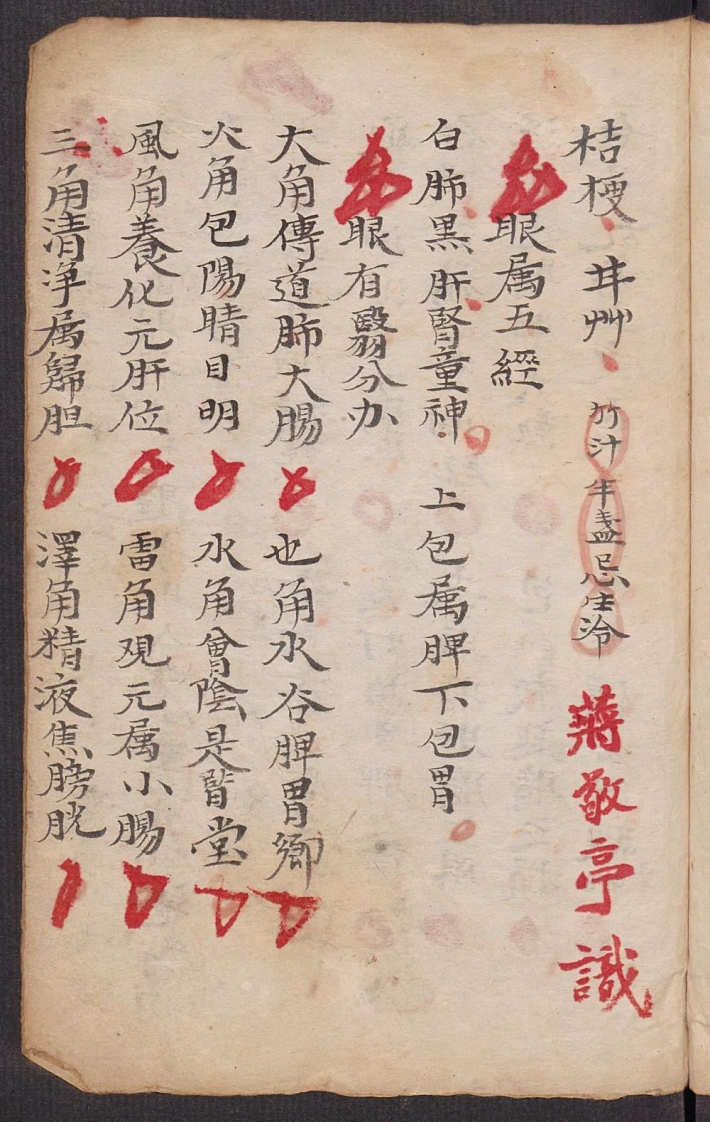 桔梗 甘艸 竹汁半盞忌生冷 蔣敬亭識
眼属五經
白肺黒肝腎童神 上包属脾下包胃
眼有翳分办
大角傳道肺大腸 也角水谷脾胃鄉
火角包陽睛目明 水角會陰是腎堂
風角養化元肝位 雷角观元属小腸
三角清净属歸胆 澤角精液焦膀胱